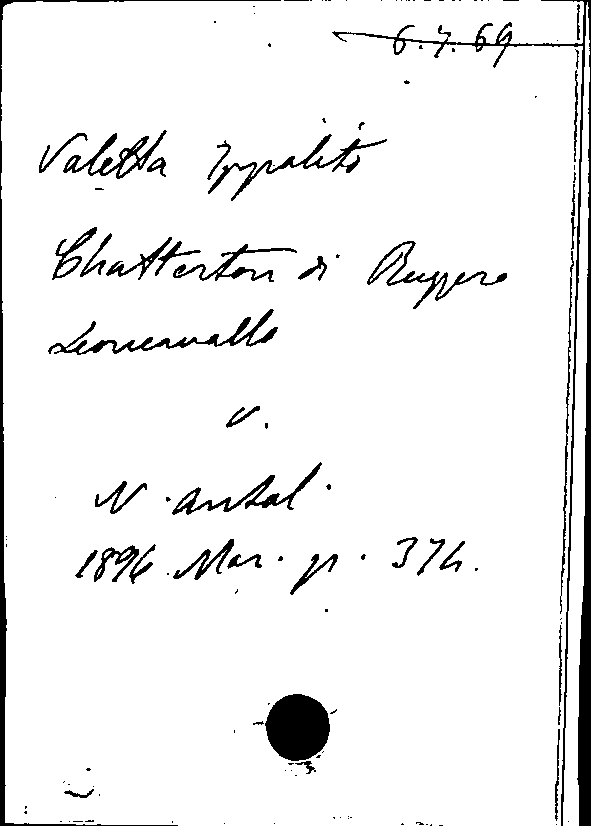 6.7.69
Valetta Ippolito
Chatterton di Ruggero
Leoncavallo
v.
N. antol.
1896 Mar. p. 374.